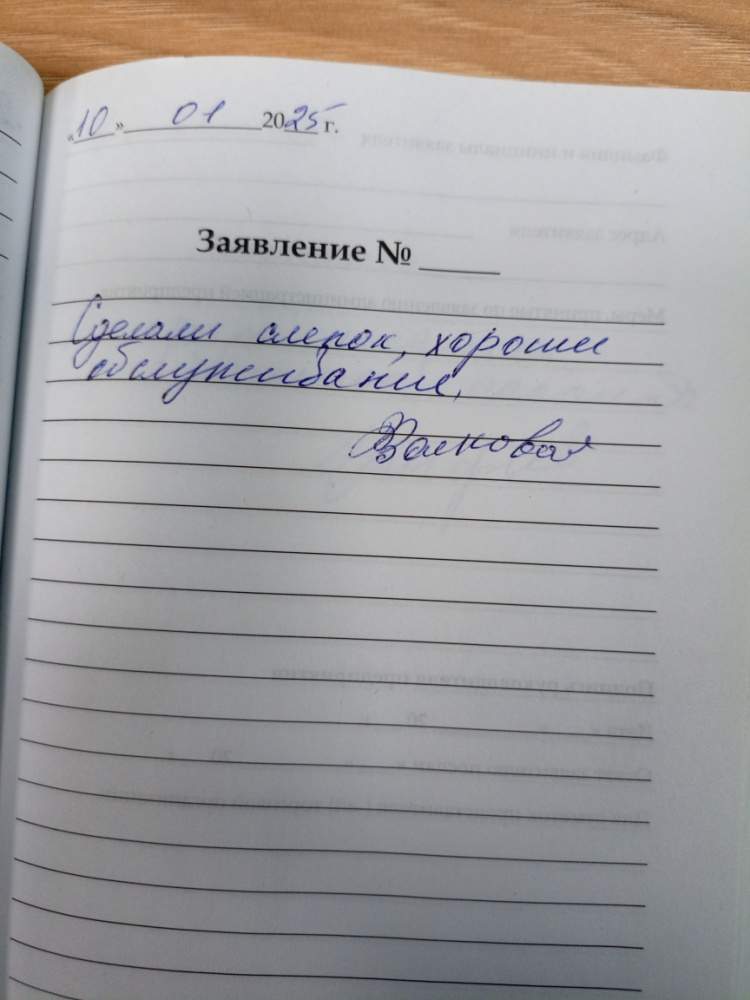 «10» 01 2025 г.
Заявление № ____
Сделали слепок, хорошие
обслуживание,
Волкова